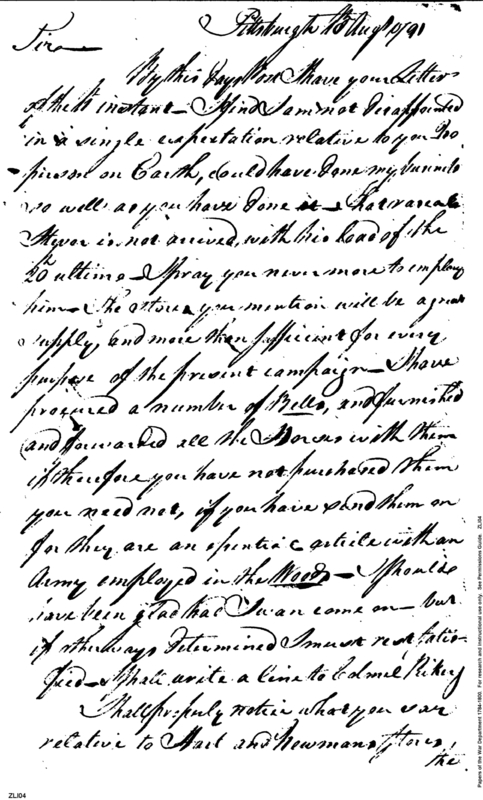 Pittsburgh 13 Augt 1791
Sir
By this Days Post I have your Letter
of the instant - I find I am not disappointed
in a single expectation relative to you. No
person on Earth, could have done my business
so well as you have done it - that rascal
is not arrived, with his load of the
20th ultimo - I pray you never more to employ
him - the stores you mention will be a great
supply, and more than sufficient for every
purpose of the present campaign - I have
procured a number of Bells, and furnished
and forwarded all the Horses with them
if therefore you have not purchased them
you need not, if you have send them on
for they are an essential article with an
Army employed in the Woods - I should
have been glad had Swan come on - but
if otherways determined I must rest satis-
fied - I shall write a line to Colonel
Shall properly notice what you say
relative to and Newmans Stores,
the
ZLI04
Papers of the War Department 1784-1800. For research and instructional use only. See Permissions Guide. ZLI04